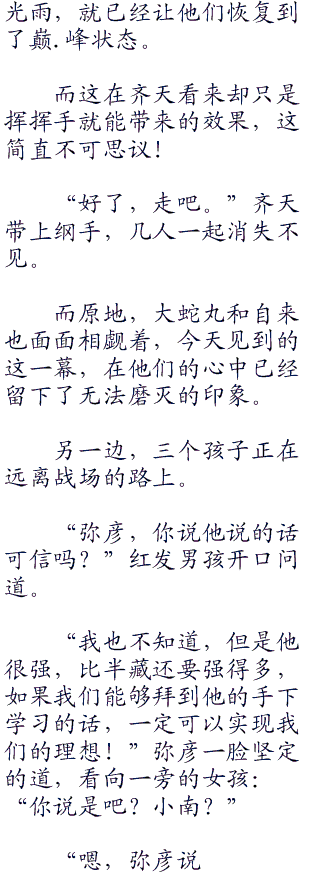 光雨，就已经让他们恢复到
了巅.峰状态。
而这在齐天看来却只是
挥挥手就能带来的效果，这
简直不可思议！
“好了，走吧。”齐天
带上纲手，几人一起消失不
见。
而原地，大蛇丸和自来
也面面相觑着，今天见到的
这一幕，在他们的心中已经
留下了无法磨灭的印象。
另一边，三个孩子正在
远离战场的路上。
“弥彦，你说他说的话
可信吗？”红发男孩开口问
道。
“我也不知道，但是他
很强，比半藏还要强得多，
如果我们能够拜到他的手下
学习的话，一定可以实现我
们的理想！”弥彦一脸坚定
的道，看向一旁的女孩：
“你说是吧？小南？”
“嗯，弥彦说